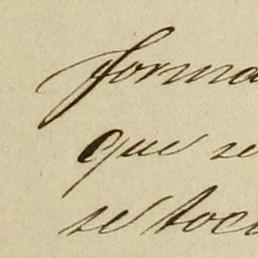 forma
que se
se toca